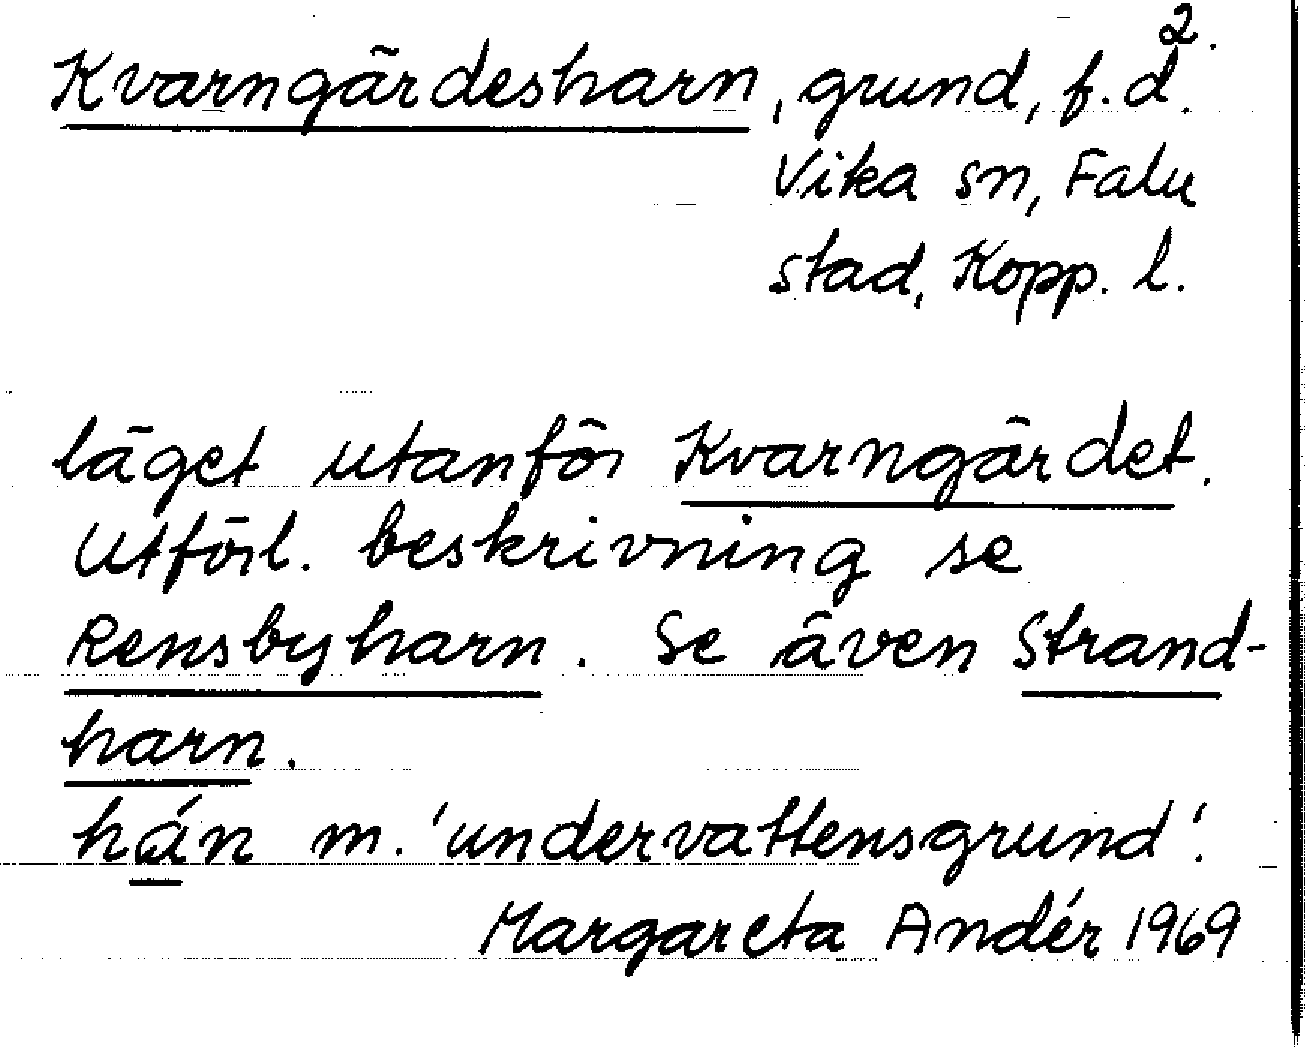 2.
Kvarngärdesharn, grund, f.d.
Vika sn, Falu
stad, Kopp. l.
läget utanför Kvarngärdet.
Utförl. beskrivning se
Rensbyharn. Se även Strand-
harn.
hán m. 'undervattensgrund'.
Margareta Andér 1969